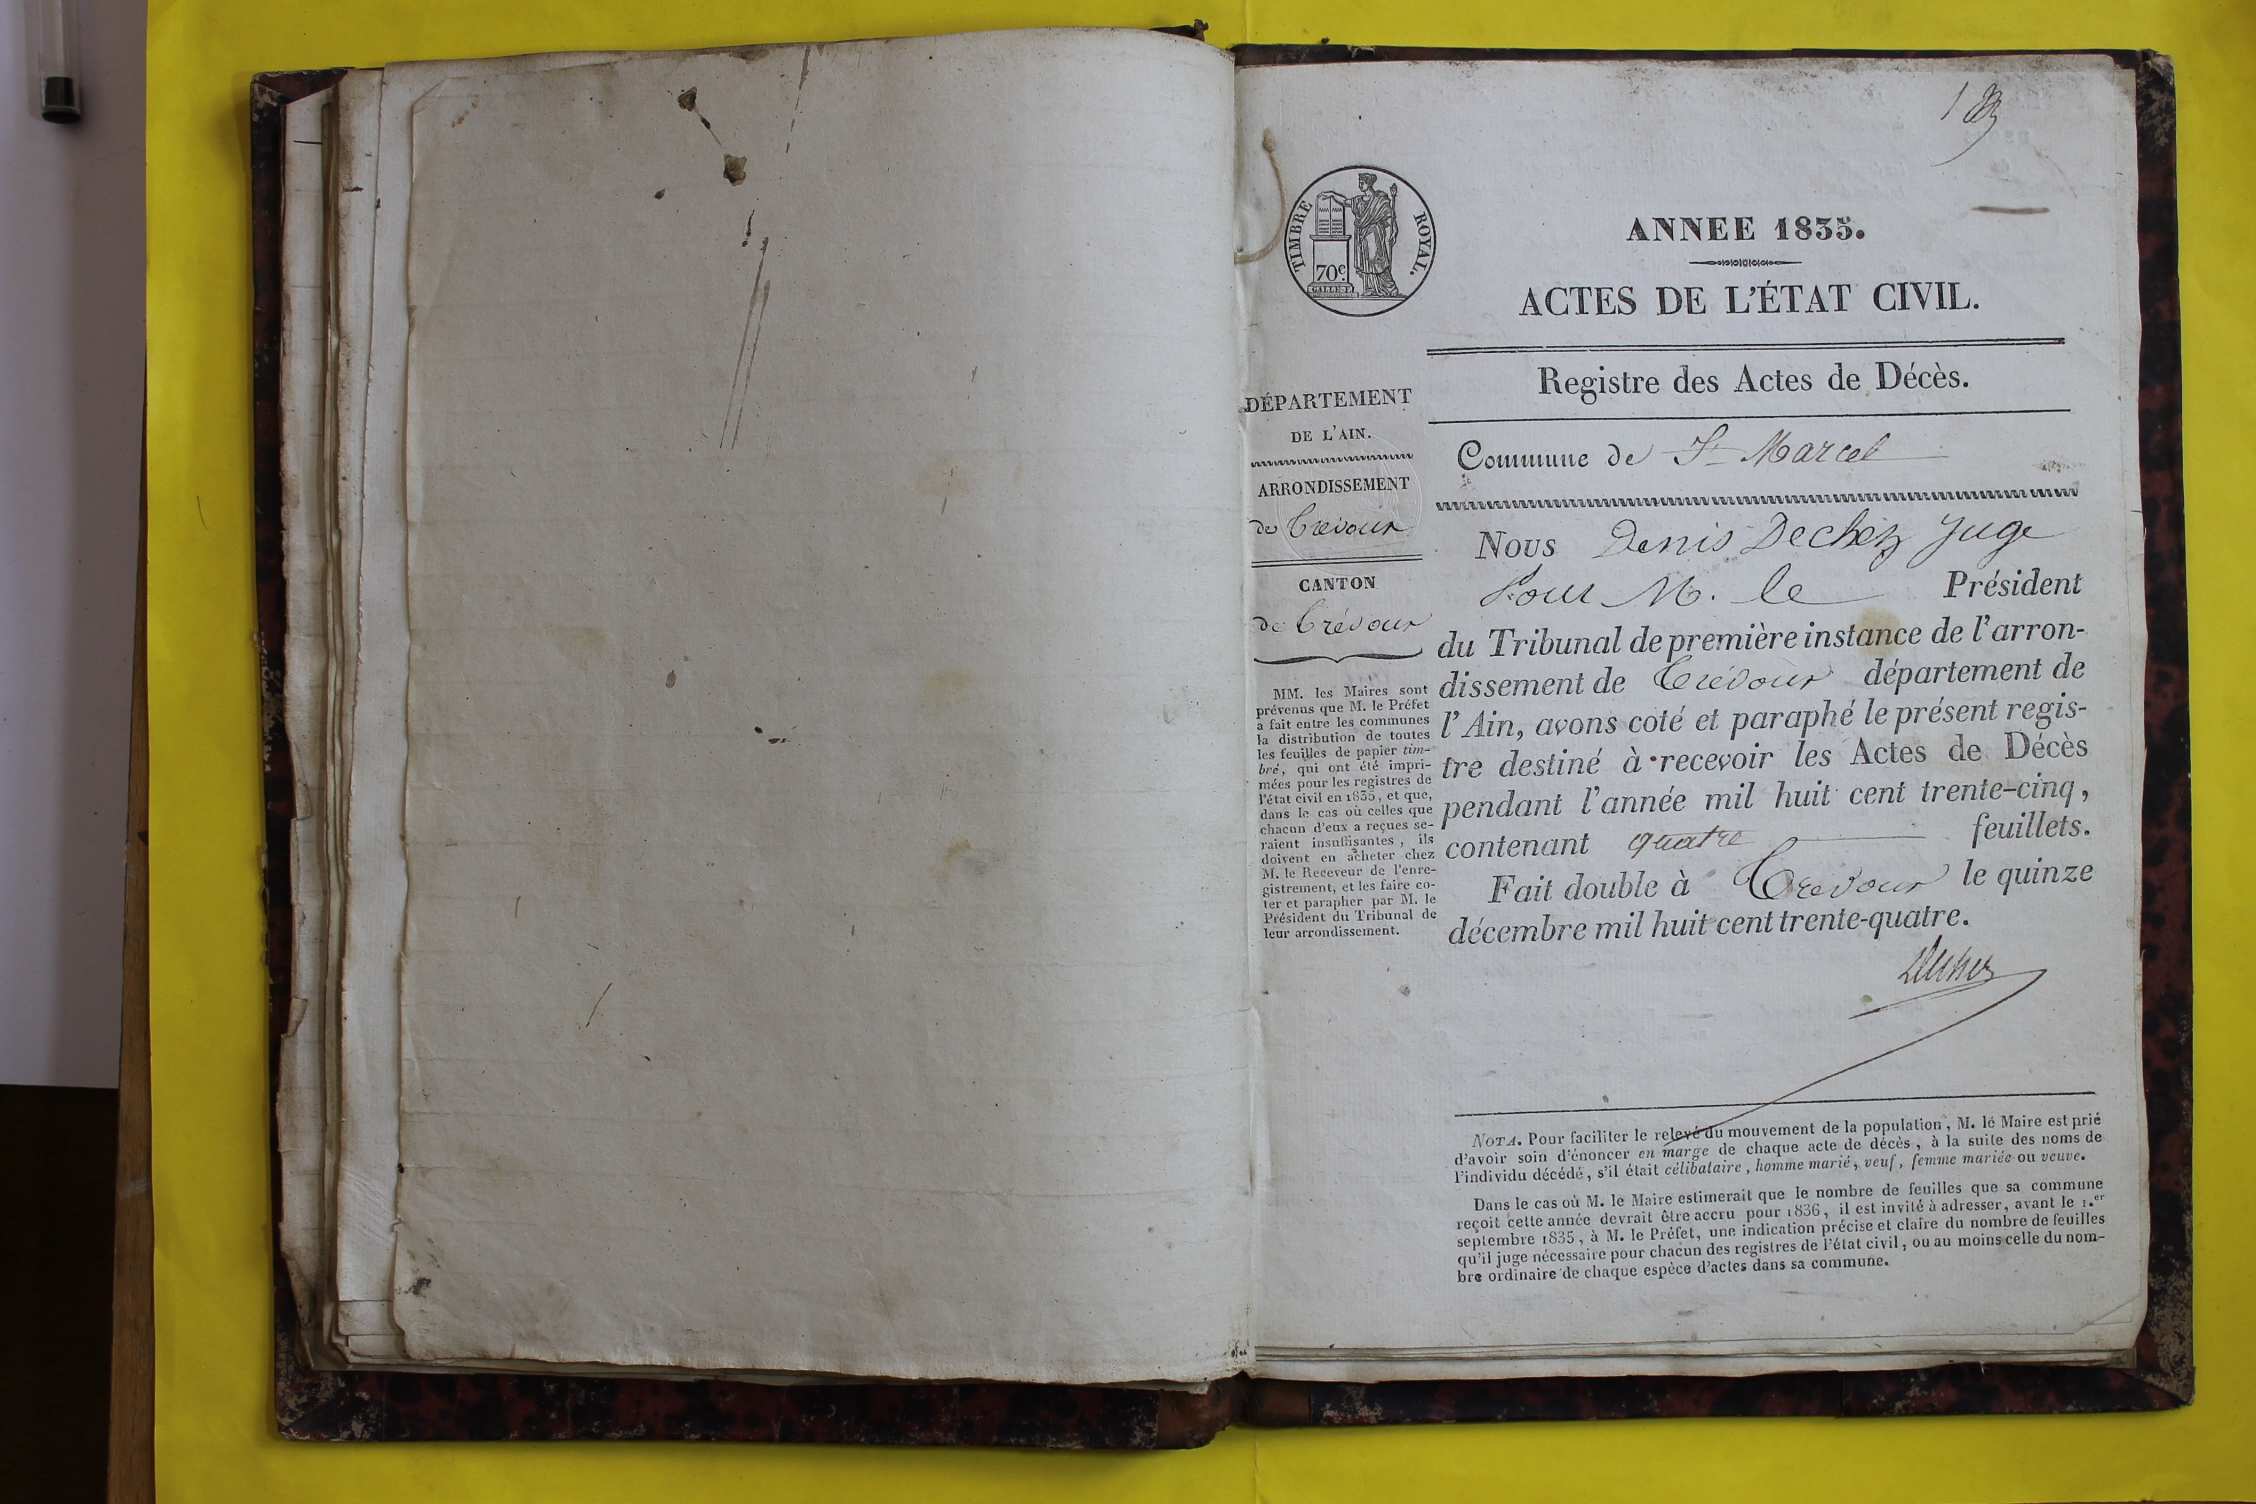 TIMBRE ROYAL.
70c.
GALLE F.
ANNEE 1835.
ACTES DE L'ÉTAT CIVIL.
Registre des Actes de Décès.
Commune de St Marcel
DÉPARTEMENT
DE L'AIN.
ARRONDISSEMENT
de Trévoux
CANTON
de Trévoux
MM. les Maires sont
prévenus que M. le Préfet
a fait entre les communes
la distribution de toutes
les feuilles de papier tim-
bré, qui ont été impri-
mées pour les registres de
l'état civil en 1835, et que,
dans le cas où celles que
chacun d'eux a reçues se-
raient insuffisantes, ils
doivent en acheter chez
M. le Receveur de l'enre-
gistrement, et les faire co-
ter et parapher par M. le
Président du Tribunal de
leur arrondissement.
Nous Denis Dechez Juge
Pour M. le Président
du Tribunal de première instance de l'arron-
dissement de Trévoux département de
l'Ain, avons coté et paraphé le présent regis-
tre destiné à recevoir les Actes de Décès
pendant l'année mil huit cent trente-cinq,
contenant quatre feuillets.
Fait double à Trevoux le quinze
décembre mil huit cent trente-quatre.
Dechez
NOTA. Pour faciliter le relevé du mouvement de la population, M. le Maire est prié
d'avoir soin d'énoncer en marge de chaque acte de décès, à la suite des noms de
l'individu décédé, s'il était célibataire, homme marié, veuf, femme mariée ou veuve.
Dans le cas où M. le Maire estimerait que le nombre de feuilles que sa commune
reçoit cette année devrait être accru pour 1836, il est invité à adresser, avant le 1.er
septembre 1835, à M. le Préfet, une indication précise et claire du nombre de feuilles
qu'il juge nécessaire pour chacun des registres de l'état civil, ou au moins celle du nom-
bre ordinaire de chaque espèce d'actes dans sa commune.